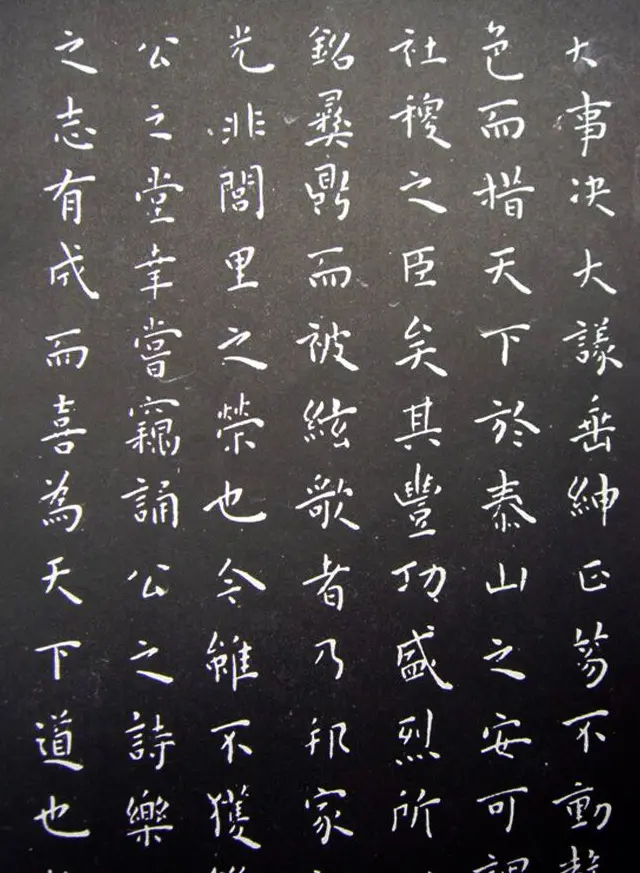 大事决大議垂紳正笏不動
色而措天下於泰山之安可謂
社稷之臣矣其豐功盛烈所
銘彝鼎而被絃歌者乃邦家
光非閭里之榮也今雖不獲
公之堂幸嘗竊誦公之詩樂
之志有成而喜為天下道也